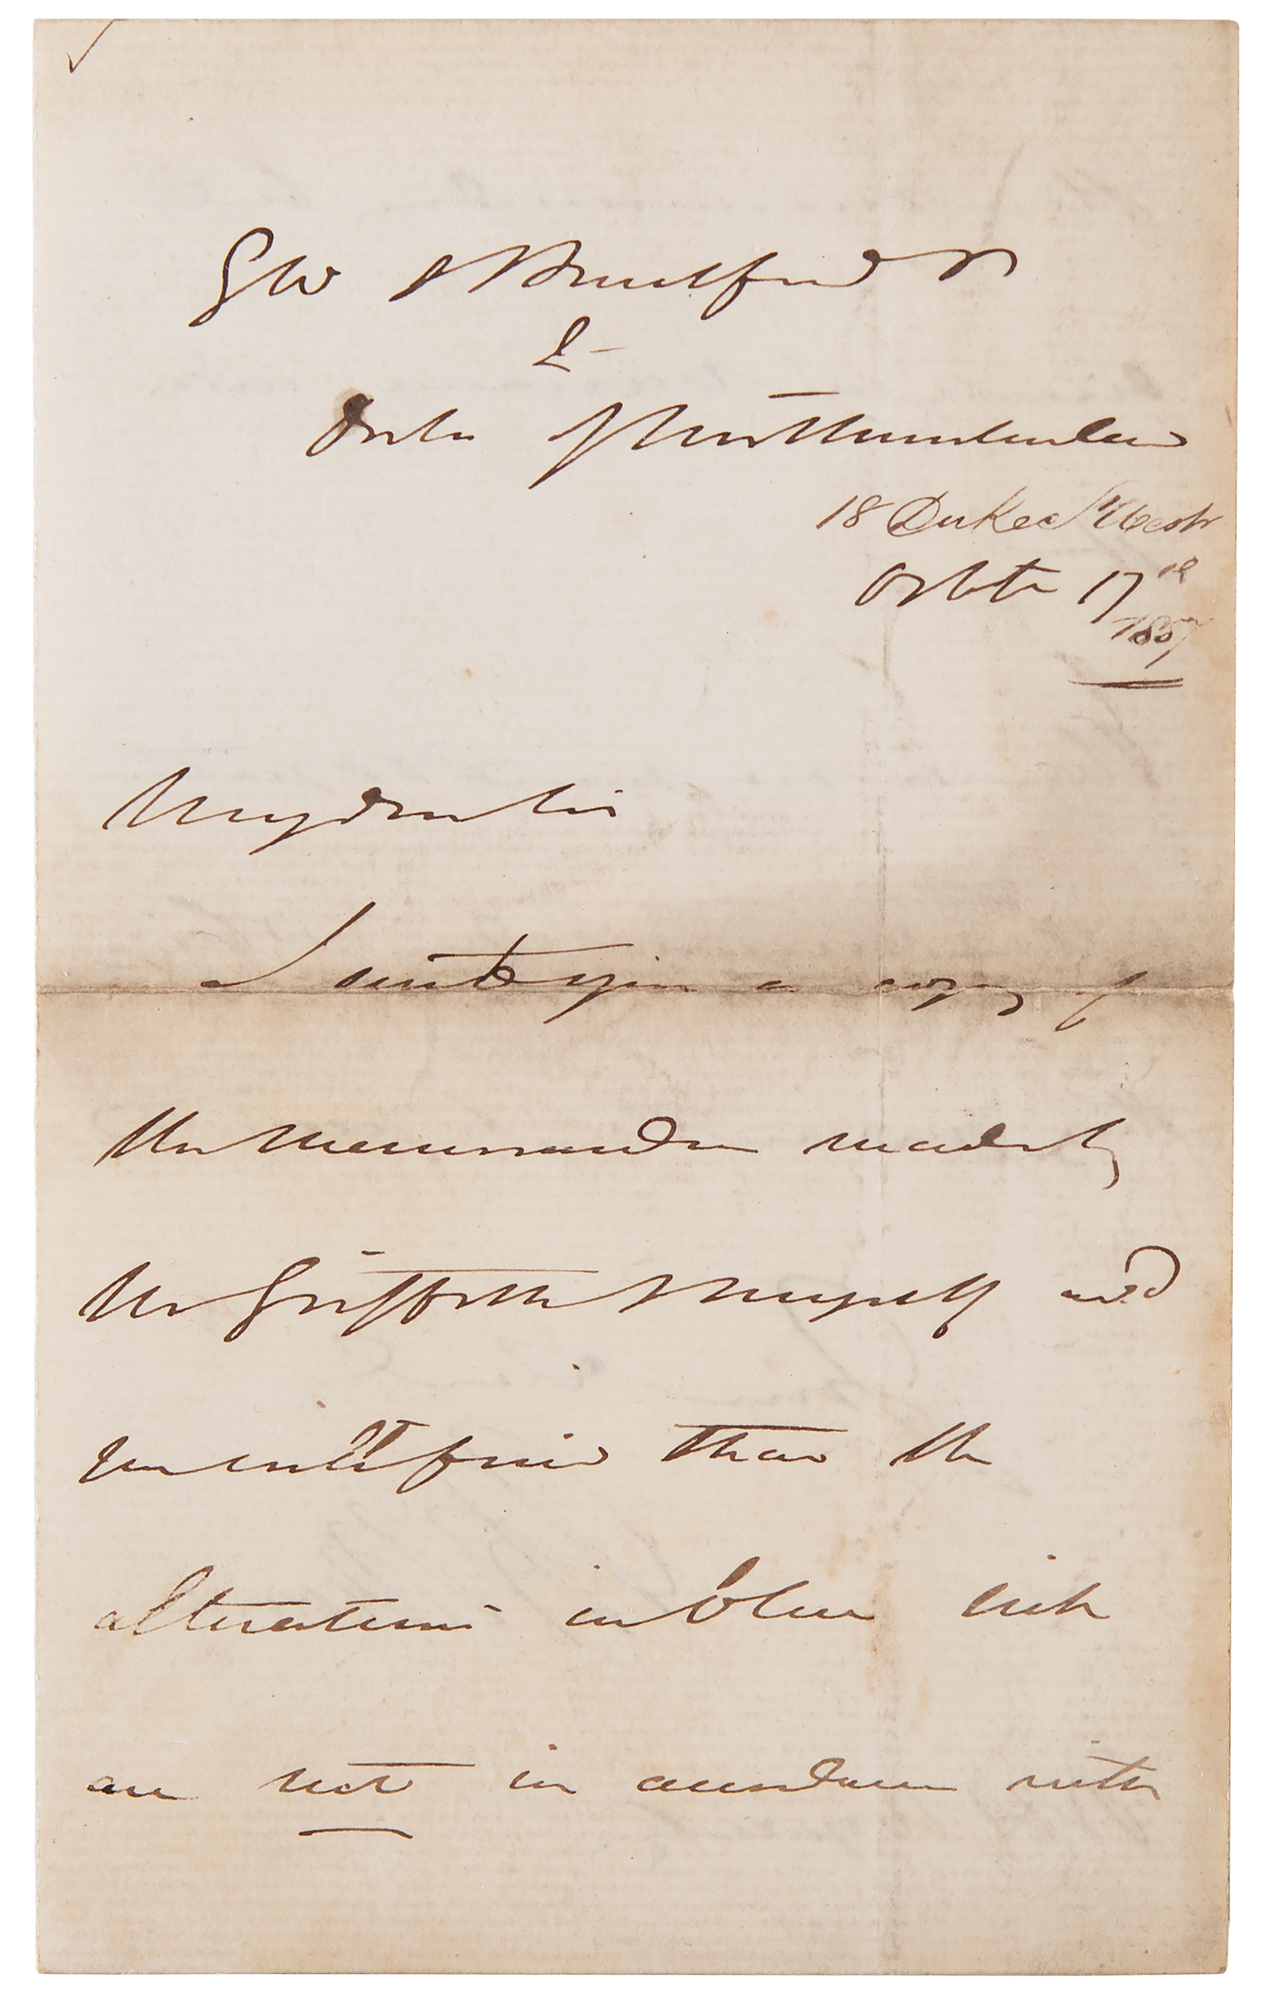 GW & Brentford Ry
&
Duke of Northumberland
18 Duke St Westr
Octbr 17th
1857
My dear Sir
I you a copy of
the Memorandum made by
Mr Griffith & myself and
you will find that the
alterations in blue ink
are not in accordance with